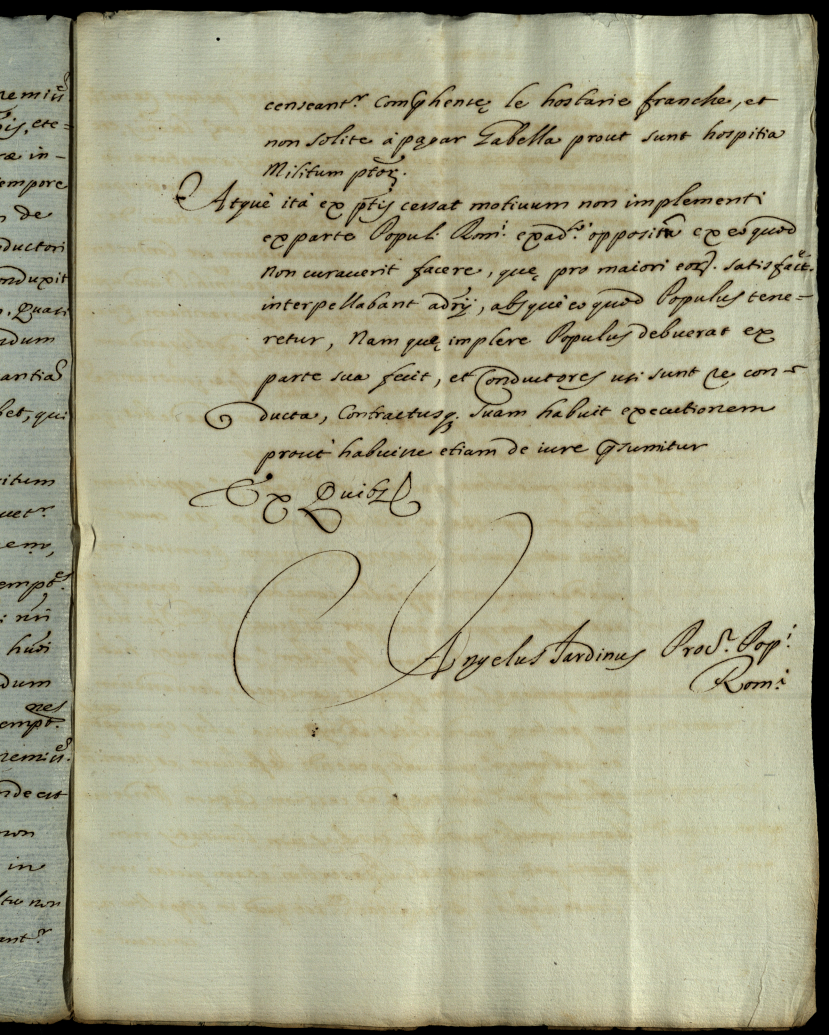 remiū
bis, ete=
ræ in-
tempore
n de
ductori
nduxit
o. Quasi
ndum
antia
bet, qui
citum
uetr.
em,
empt.es
: nři
hūoi
dum
empt.nes
remiū.
nde est
non
in
ltu non
antr.
censeantr. comp̄hensę le hostarie franche, et
non solite à pagar Gabella prout sunt hospitia
Militum ptorȝ.
Atquè ità ex ptis cessat motiuum non implementi
ex parte Popul. Romi. exadr. oppositū ex eo quod
non curauerit facere, quę pro maiori eorȝ. satisfact.e
interpellabant adrij, absquè eo quod Populus tene=
retur, Nam quę implere Populus debuerat ex
parte sua fecit, et Conductores usi sunt re con=
ducta, Contractusq. suam habuit executionem
prout habuisse etiam de iure p̄sumitur
Ex Quibȝ
Angelus Jardinus Procr. Popi.
Romi.